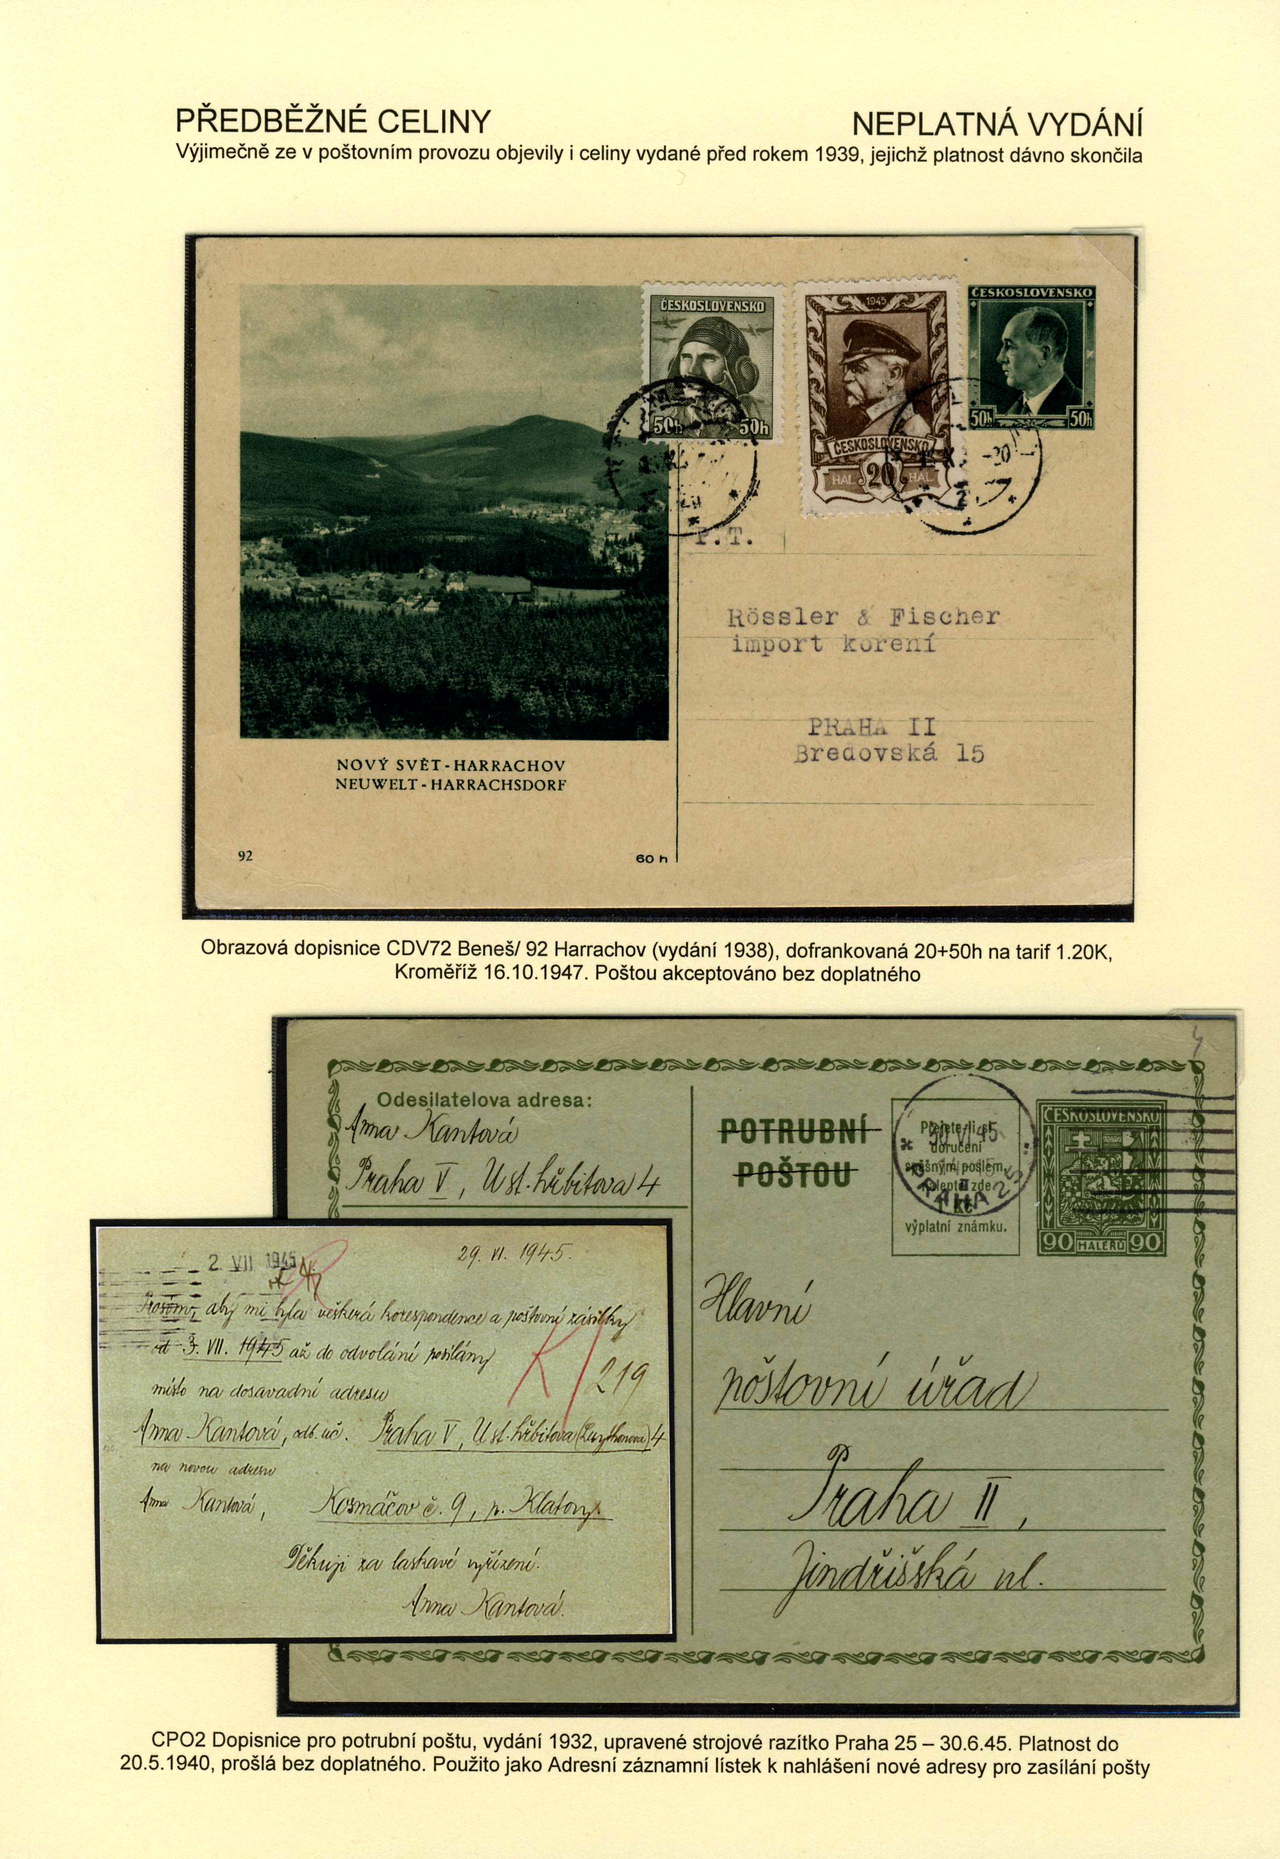 PŘEDBĚŽNÉ CELINY
NEPLATNÁ VYDÁNÍ
Výjimečně ze v poštovním provozu objevily i celiny vydané před rokem 1939, jejichž platnost dávno skončila
ČESKOSLOVENSKO
50h 50h
1945
ČESKOSLOVENSKO
HAL 20 HAL
ČESKOSLOVENSKO
50h 50h
P.T.
Rössler & Fischer
import korení
PRAHA II
Bredovská 15
NOVÝ SVĚT-HARRACHOV
NEUWELT-HARRACHSDORF
92
60 h
Obrazová dopisnice CDV72 Beneš/ 92 Harrachov (vydání 1938), dofrankovaná 20+50h na tarif 1.20K,
Kroměříž 16.10.1947. Poštou akceptováno bez doplatného
Odesilatelova adresa:
Anna Kantová
Praha V, U st. hřbitova 4
POTRUBNÍ
POŠTOU
Přejete-li si
doručení
spěšným poslem,
nalepte zde
1 Kč
výplatní známku.
30.VI.45
PRAHA 25
ČESKOSLOVENSKO
90 HALÉŘŮ 90
Hlavní
poštovní úřad
Praha II,
Jindřišská ul.
2 VII 1945
29. VI. 1945.
Prosím, aby mi byla veškerá korespondence a poštovní zásilky
od 3. VII. 1945 až do odvolání posílány
místo na dosavadní adresu
219
Anna Kantová, odb. uč. Praha V, U st. hřbitova 4
na novou adresu
Anna Kantová, Kosmáčov č. 9, p. Klatovy.
Děkuji za laskavé vyřízení.
Anna Kantová.
CPO2 Dopisnice pro potrubní poštu, vydání 1932, upravené strojové razítko Praha 25 – 30.6.45. Platnost do
20.5.1940, prošlá bez doplatného. Použito jako Adresní záznamní lístek k nahlášení nové adresy pro zasílání pošty